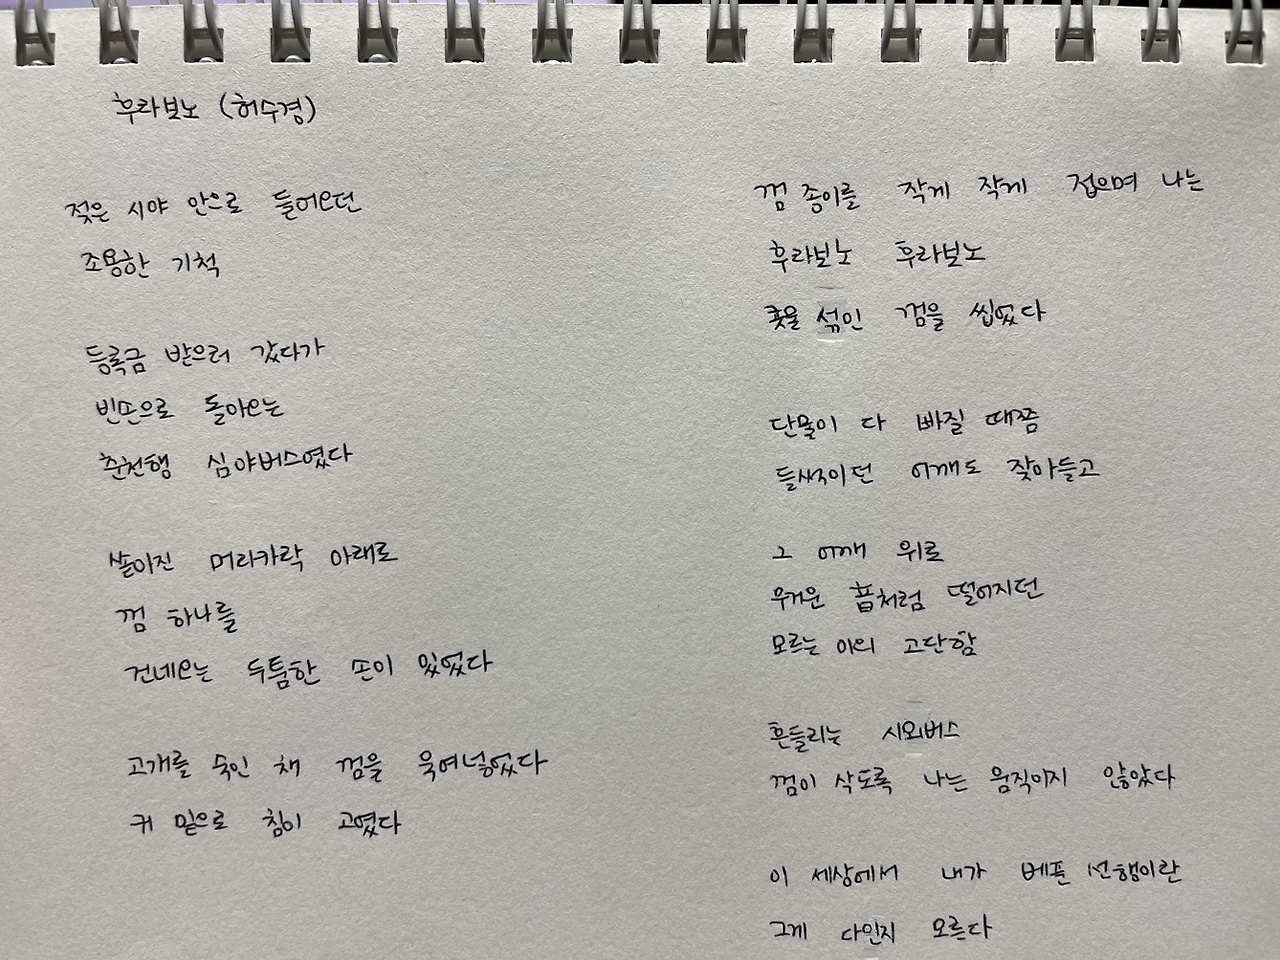 후라보노 (허수경)
젖은 시야 안으로 들어오던
조용한 기척
등록금 받으러 갔다가
빈손으로 돌아오는
춘천행 심야버스였다
쏟아진 머리카락 아래로
껌 하나를
건네오는 두툼한 손이 있었다
고개를 숙인 채 껌을 욱여넣었다
귀 밑으로 침이 고였다
껌 종이를 작게 작게 접으며 나는
후라보노 후라보노
콧물 섞인 껌을 씹었다
단물이 다 빠질 때쯤
들썩이던 어깨도 잦아들고
그 어깨 위로
무거운 흠처럼 떨어지던
모르는 이의 고단함
흔들리는 시외버스
껌이 삭도록 나는 움직이지 않았다
이 세상에서 내가 베픈 선행이란
그게 다인지 모른다